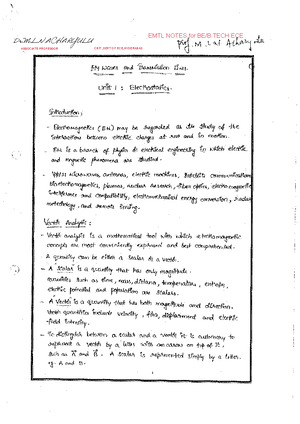 EMTL NOTES for BE/B.TECH ECE
EM Waves and Transmission Lines.
Unit 1 : Electrostatics.
Introduction :
- Electromagnetics (EM) may be regarded as the study of the
interactions between electric charges at rest and in motion.
- EM is a branch of physics or electrical engineering in which electric
and magnetic phenomena are studied.
microwaves, antennas, electric machines, satellite communications,
bioelectromagnetics, plasmas, nuclear research, fiber optics, electromagnetic
interference and compatibility, electromechanical energy conversion, radar
meteorology, and remote sensing.
Vector Analysis :
- Vector analysis is a mathematical tool with which electromagnetic
concepts are most conveniently expressed and best comprehended.
A quantity can be either a scalar or a vector.
- A scalar is a quantity that has only magnitude.
quantities such as time, mass, distance, temperature, entropy,
electric potential and population are scalars.
- A vector is a quantity that has both magnitude and direction.
Vector quantities include velocity, force, displacement and electric
field intensity.
- To distinguish between a scalar and a vector it is customary to
represent a vector by a letter with an arrow on top of it,
such as A and B. A scalar is represented simply by a letter.
eg. A and B.